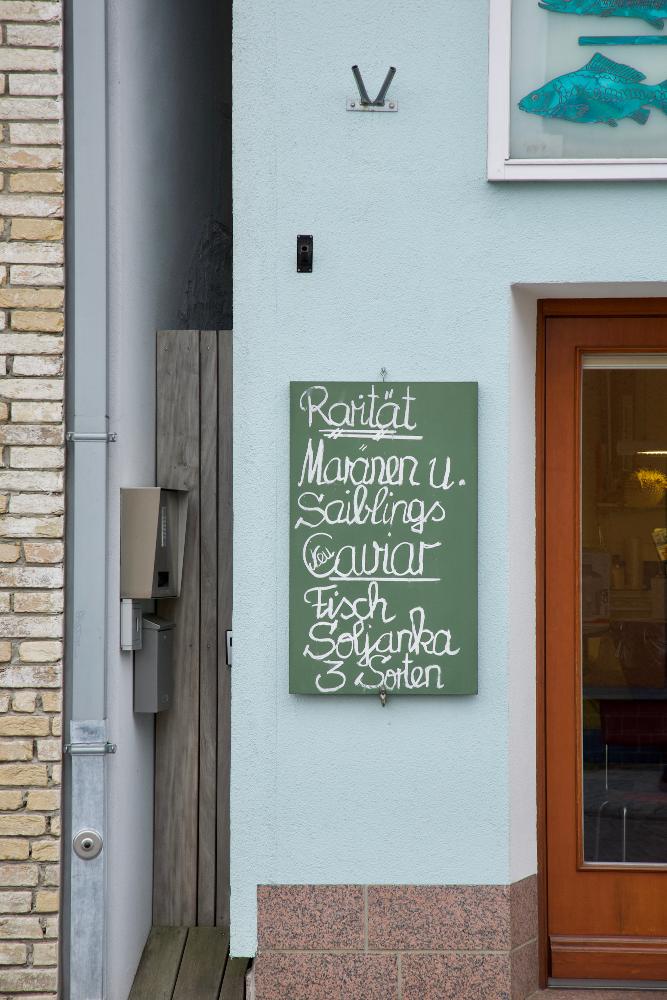 Rarität
Maränen u.
Saiblings
Neu Caviar
Fisch
Soljanka
3 Sorten